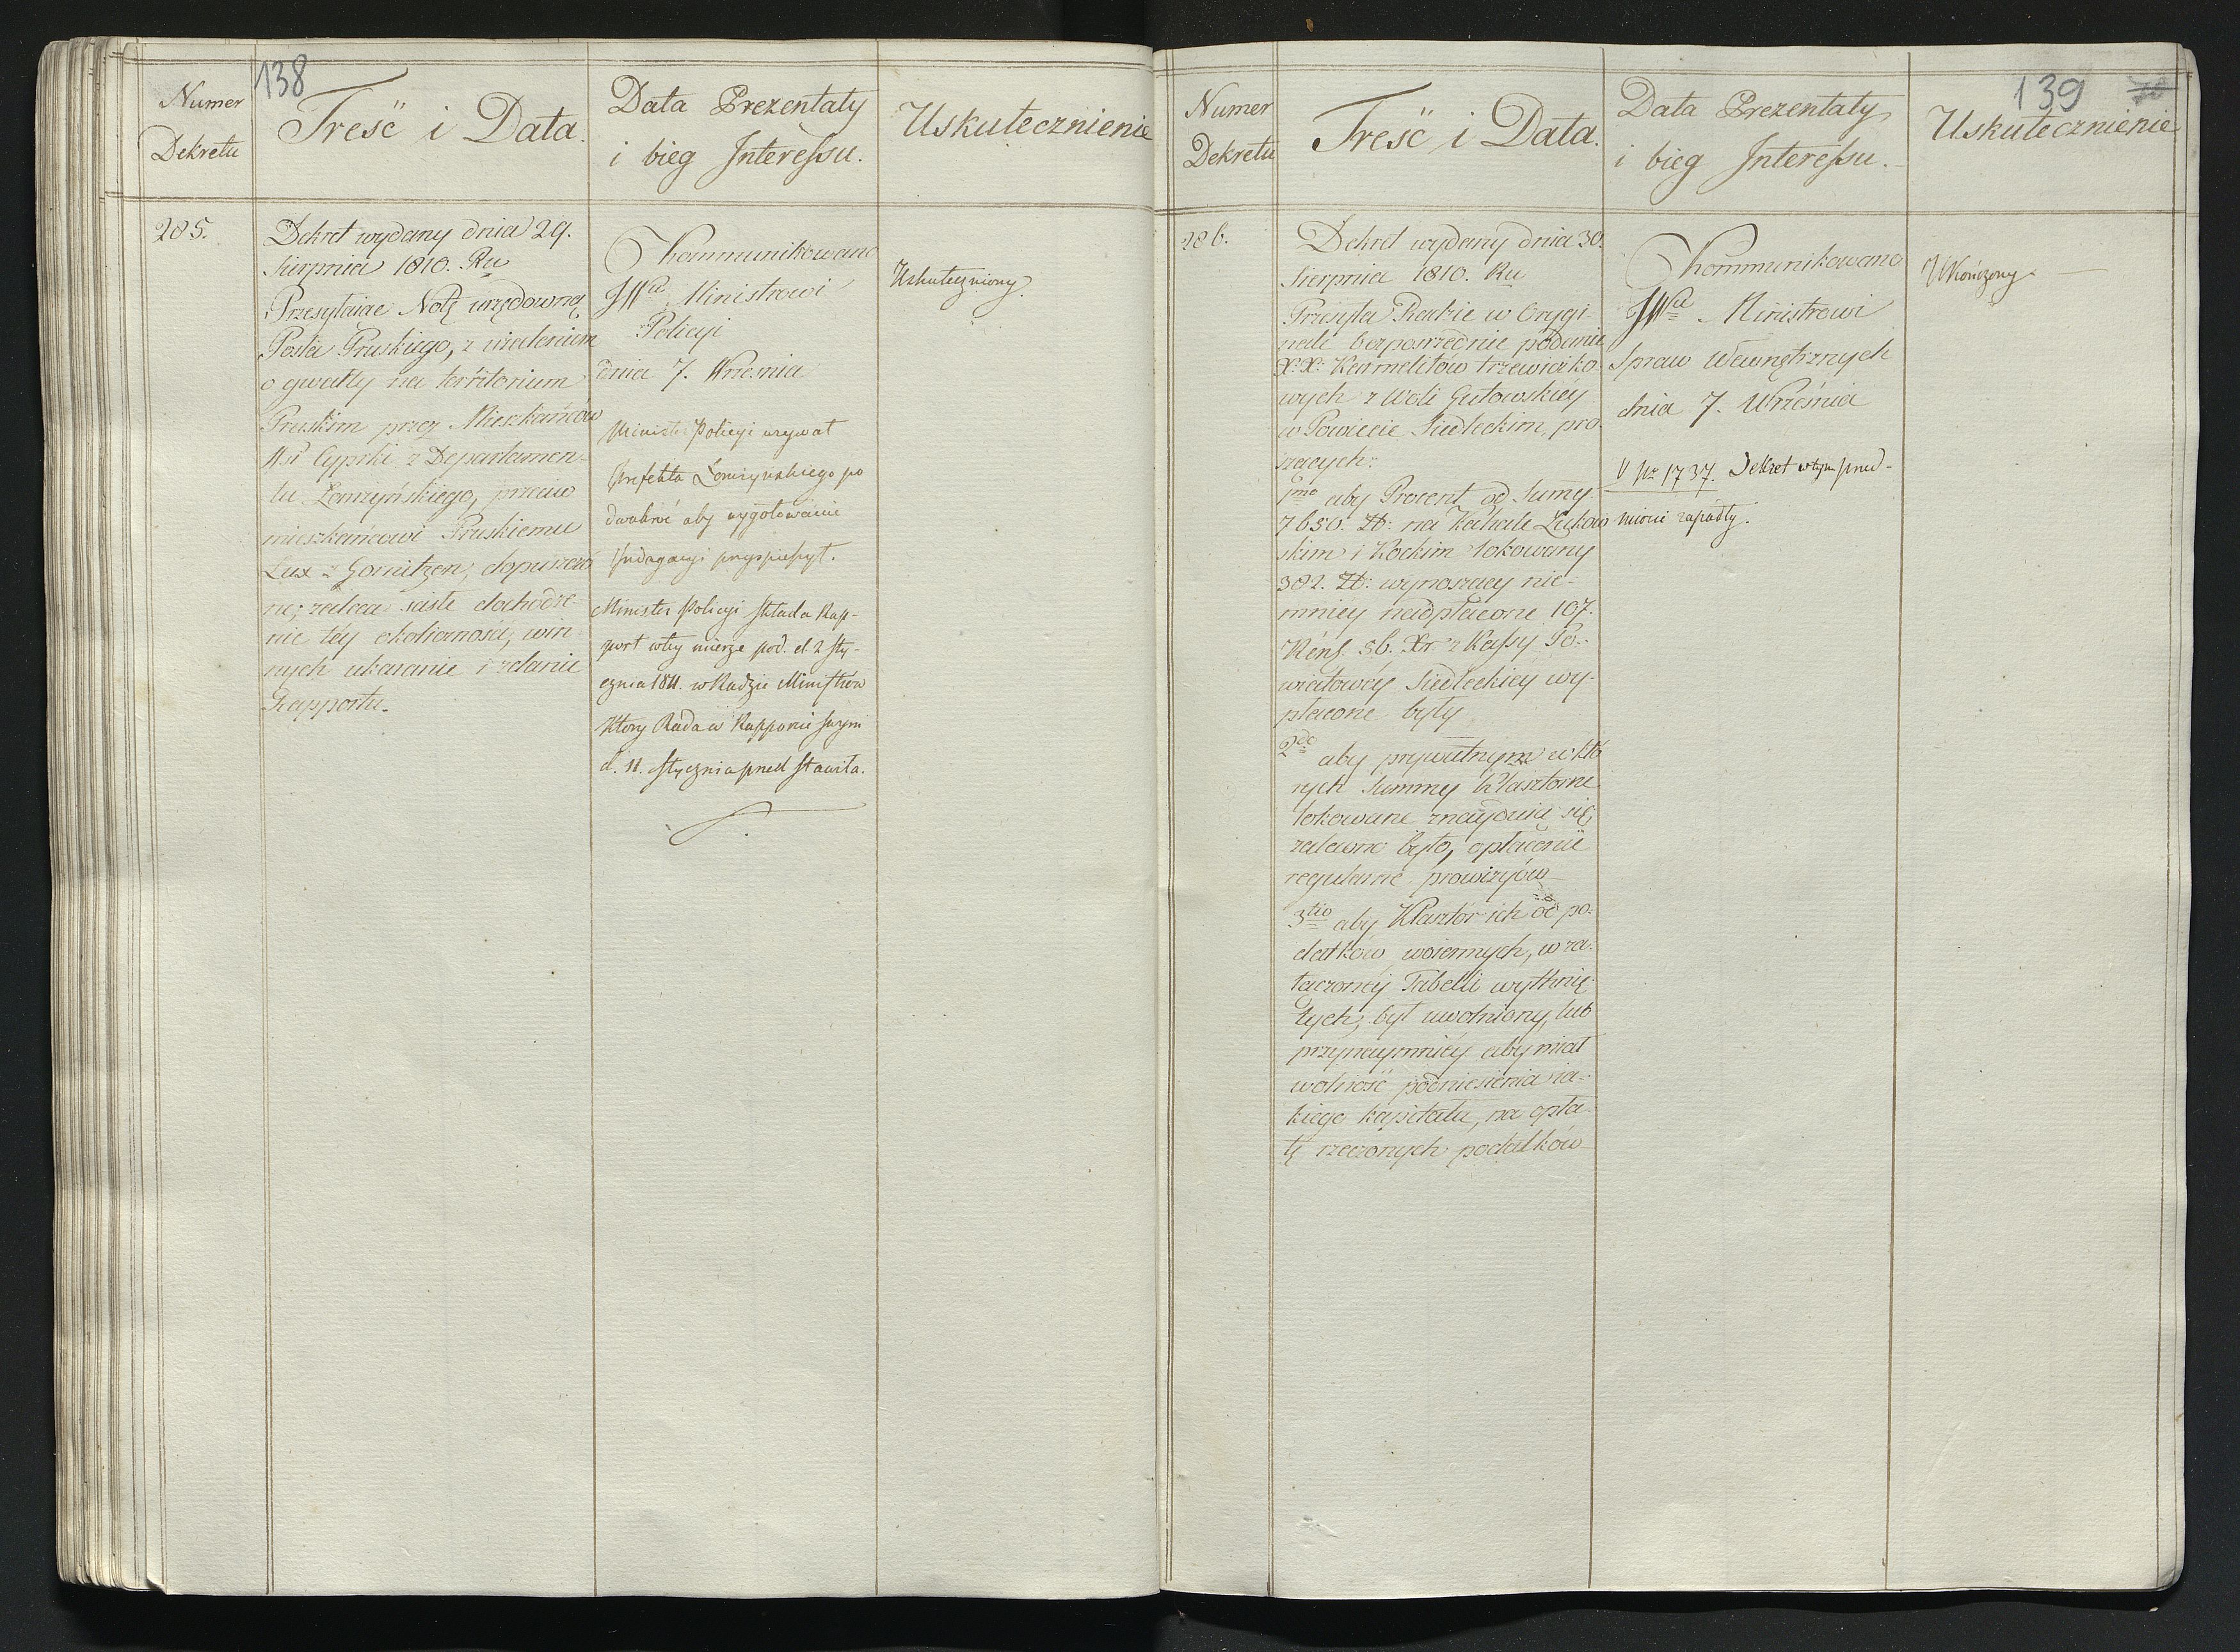 138
Numer
Dekretu
Treść i Data.
Data Prezentaty
i bieg Interessu.
Uskutecznienie
285.
Dekret wydany dnia 29.
Sierpnia 1810. Ru
Przesyłaiąc Notę urzędowną
Posła Pruskiego, z użaleniem
o gwałty na territorium
Pruskim przez Mieszkańców
Wsi Cyprki z Departamen-
tu Łomżyńskiego, przeciw
mieszkańcowi Pruskiemu
Lux z Gomitzen, dopuszczo
ne; zaleca ścisłe dochodze-
nie téy okoliczności, win-
nych ukaranie i zdanie
Rapportu.
Kommunikowano
JWu Ministrowi
Policyi
dnia 7. Września
Minister Policyi wzywał
Prefekta Łomżyńskiego po
dwakroć aby wygotowanie
Indagacyi przyspieszył.
Minister Policyi składa Rap-
port w tey mierze pod. d. 2 Sty-
cznia 1811. w Radzie Ministrów
Który Rada w Rapporcie swym
d. 11. Stycznia przedstawiła.
Uskuteczniony.
139
Numer
Dekretu
Treść i Data.
Data Prezentaty
i bieg Interessu.
Uskutecznienie
286.
Dekret wydany dnia 30.
Sierpnia 1810. Ru
Przesyła Radzie w Orygi
nale bezpośrednie podanie
X.X. Karmelitów trzewiczko-
wych z Woli Gułowskiéy
w Powiecie Siedleckim, pro-
szących:
1mo aby Procent od Sumy
7650. Zł: na Kahale Łukow
skim i Kockim lokowany
382. Zł: wynoszący nie-
mniey nadpłacone 107.
Réńs. 36. Xr z Kassy Po-
wiatowéy Siedleckiéy wy-
płacone były
2do aby prywatnym u któ
rych Summy Klasztorne
lokowane znayduią się,
zalecone było, opłacenie
regularne prowizyów
3tio aby Klasztor ich od po-
datków woiennych, w za-
łączonéy Tabelli wytknię-
tych, był uwolniony, lub
przynaymniéy aby miał
wolność podniesienia ia-
kiego kapitału, na opła-
tę rzeczonych podatków
Kommunikowano
JWu Ministrowi
Spraw Wewnętrznych
dnia 7. Września
V Nr 1737. Dekret w tym przed-
miocie zapadły.
Ukończony.